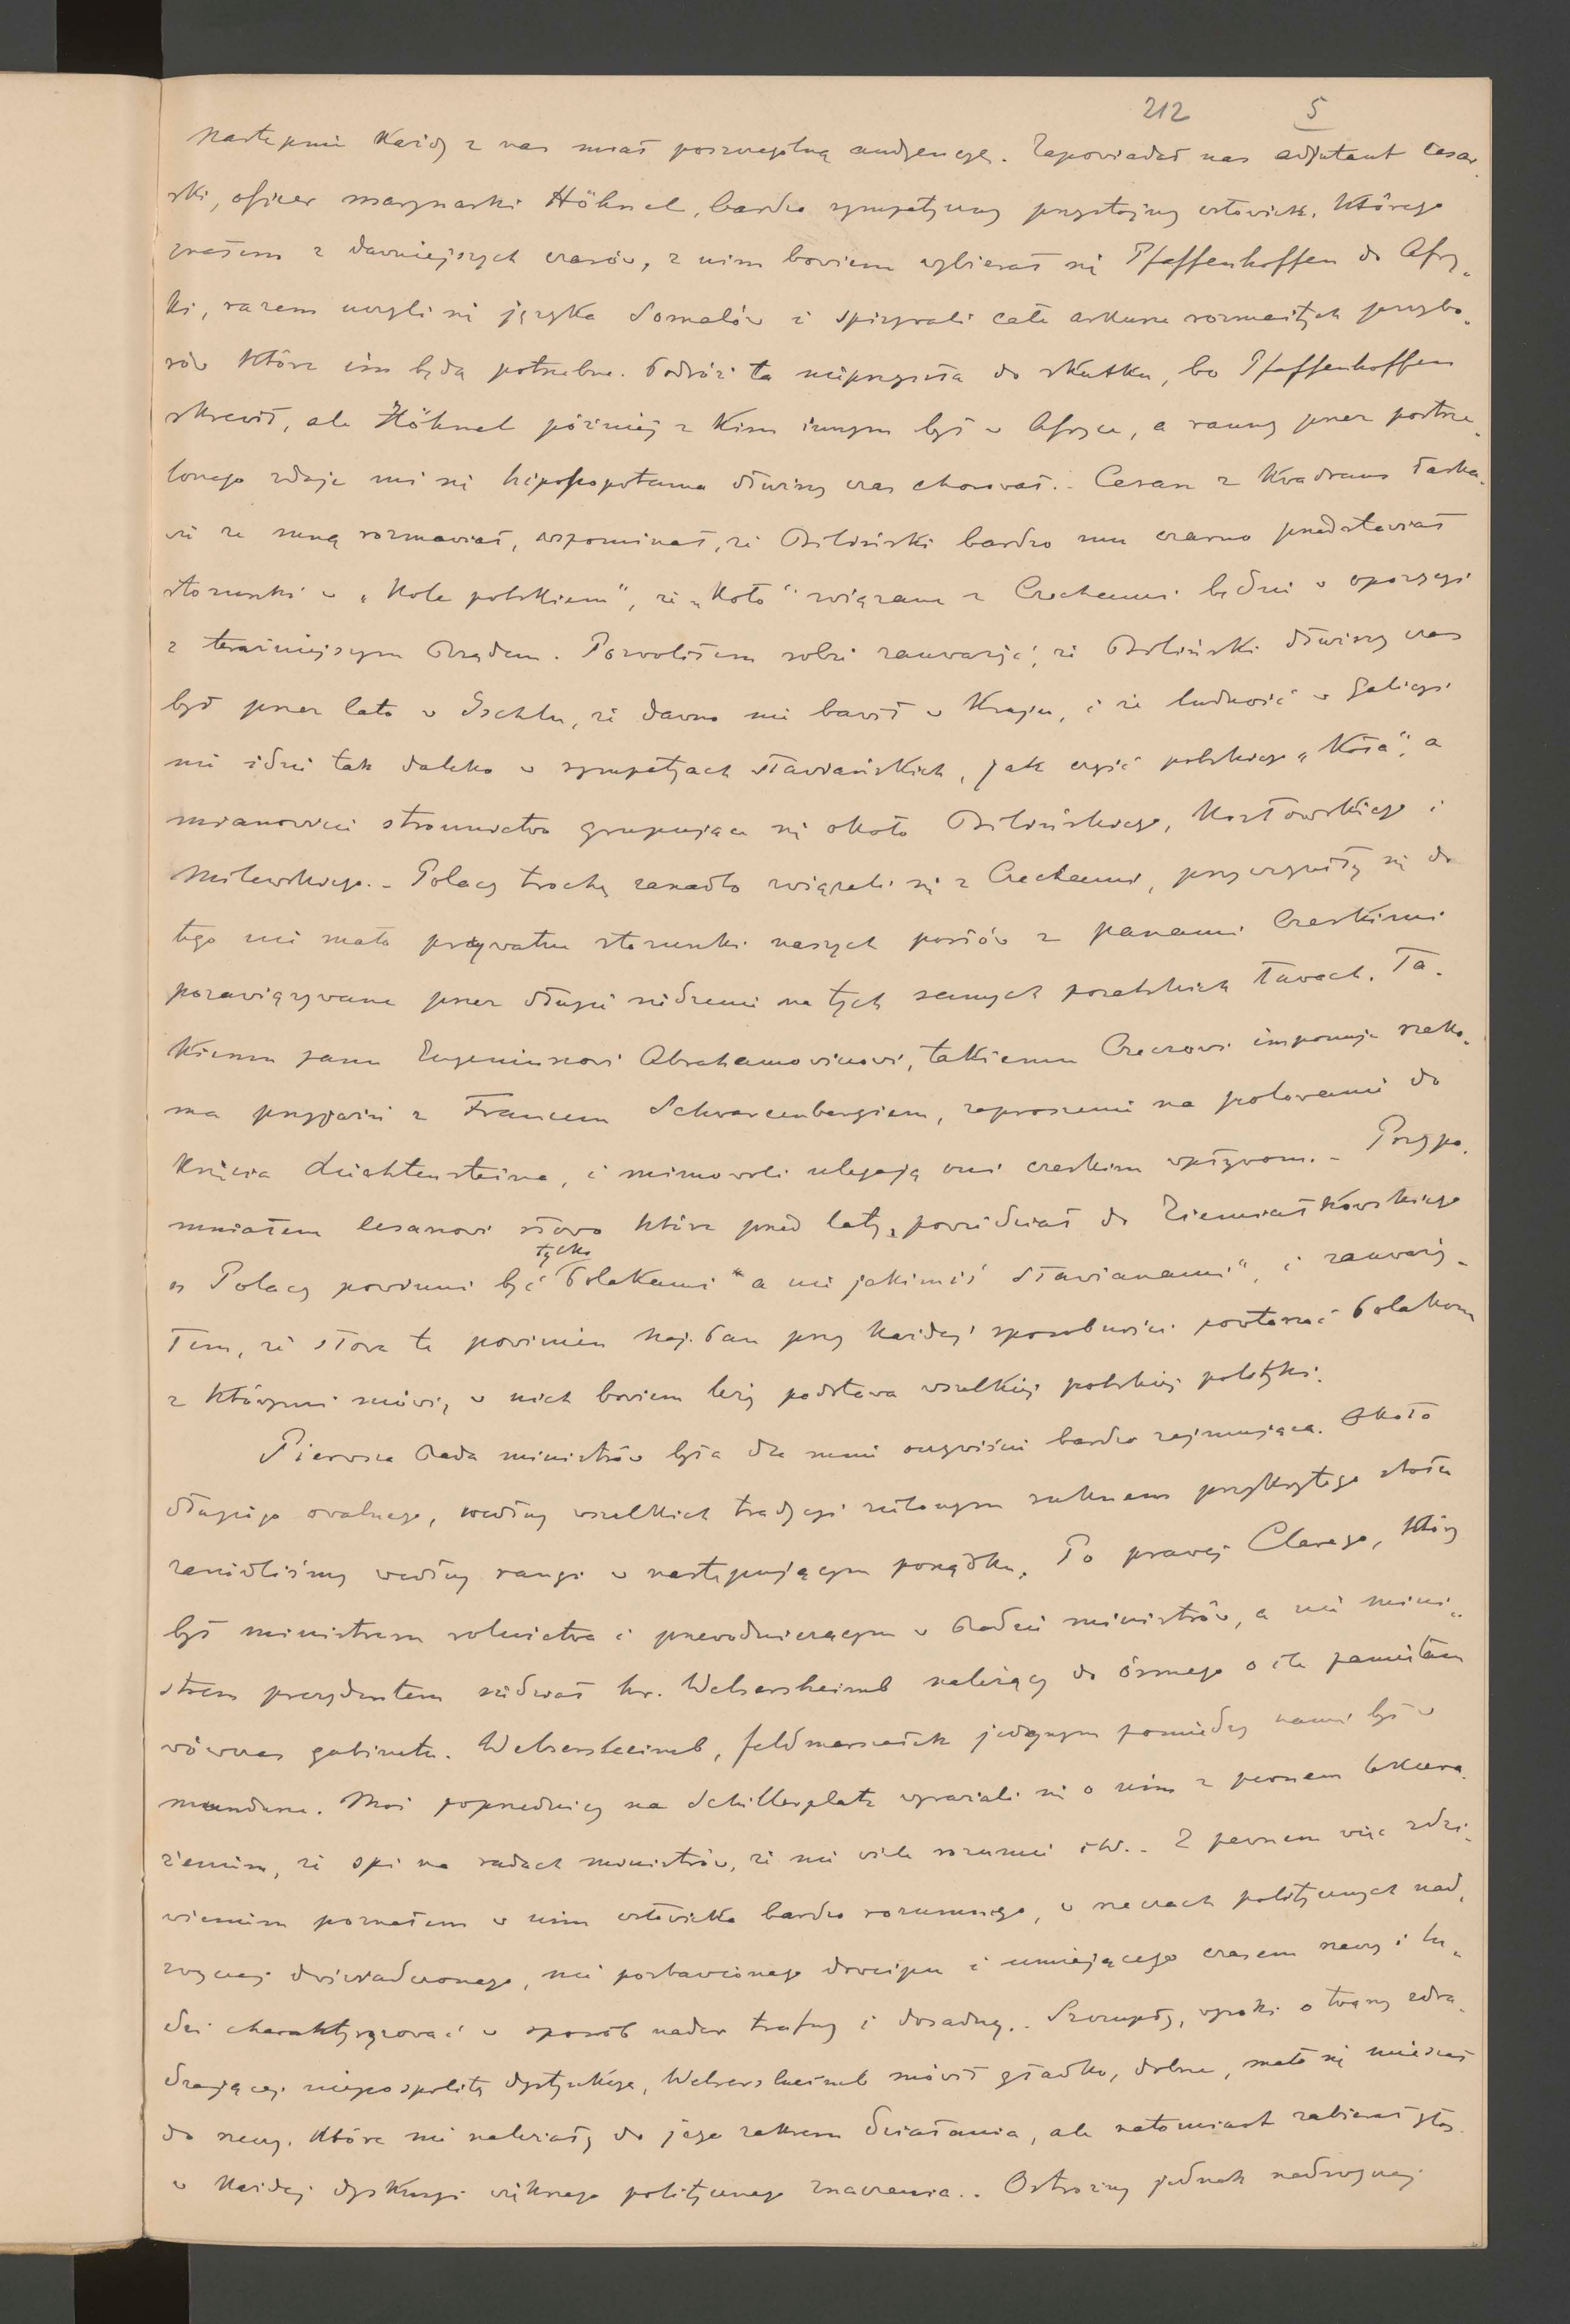 212 5
Następnie każdy z nas miał poszczególną audjencyę. Zapowiadał nas adjutant cesar-
ski, oficer marynarki Höhnel, bardzo sympatyczny przystojny człowiek, którego
znałem z dawniejszych czasów, z nim bowiem wybierał się Pfaffenhoffen do Afry-
ki, razem uczyli się języka Somalów i spisywali całe arkusze rozmaitych przybo-
rów które im będą potrzebne. Podróż ta nieprzyszła do skutku, bo Pfaffenhoffen
skrewił, ale Höhnel później z kim innym był w Afryce, a ranny przez postrze-
lonego zdaje mi się hipopopotama dłuższy czas chorował. - Cesarz z kwadrans łaska-
wie ze mną rozmawiał, wspominał, że Biliński bardzo mu czarno przedstawiał
stosunki w „Kole polskiem", że „Koło" związane z Czechami będzie w opozycyi
z teraźniejszym Rządem. Pozwoliłem sobie zauważyć, że Biliński dłuższy czas
był przez lato w Ischlu, że dawno nie bawił w Kraju, i że ludność w Galicyi
nie idzie tak daleko w sympatjach słowiańskich, jak część polskiego „Koła", a
mianowicie stronnictwo grupujące się około Bilińskiego, Kozłowskiego i
Milewskiego. - Polacy trochę zanadto związali się z Czechami, przyczyniły się do
tego nie mało prywatne stosunki naszych posłów z panami Czeskimi
pozawiązywane przez długie siedzenie na tych samych poselskich ławach. Ta-
kiemu panu Eugeniuszowi Abrahamowiczowi, takiemu Czeczowi imponuje rzeko-
ma przyjaźń z Francem Schwarcenbergiem, zaproszenie na polowanie do
Księcia Liechtensteina, i mimowoli ulegają oni czeskim wpływom. - Przypo-
mniałem Cesarzowi słowo które przed laty powiedział do Ziemiałkowskiego
„Polacy powinni być tylko Polakami" a nie jakimiś Sławianami", i zauważy-
łem, że słowa te powinien Naj. Pan przy każdej sposobności powtarzać Polakom
z którymi mówi, w nich bowiem leży podstawa wszelkiej polskiej polityki.
Pierwsza Rada ministrów była dla mnie oczywiście bardzo zajmująca. Około
długiego owalnego, według wszelkich tradycyi zielonym suknem przykrytego stołu
zasiedliśmy według rangi w następującym porządku. Po prawej Clarego, który
był ministrem rolnictwa i przewodniczącym w Radzie ministrów, a nie mini-
strem prezydentem siedział hr. Welsersheimb należący do ósmego o ile pamiętam
wówczas gabinetu. Welsersheimb, feldmarszałek jedynym pomiędzy nami był w
mundurze. Moi poprzednicy na Schillerplatz wyrażali się o nim z pewnem lekcewa-
żeniem, że śpi na radach ministrów, że nie wiele rozumie itd. - Z pewnem więc zdzi-
wieniem poznałem w nim człowieka bardzo rozumnego, w rzeczach politycznych nad-
zwyczaj doświadczonego, nie pozbawionego dowcipu i umiejącego czasem rzeczy i lu-
dzi charaktyryzować w sposób nader trafny i dosadny. - Szczupły, wysoki o twarzy zdra-
dzającej niepospolitą dystynkcyę, Welsersheimb mówił gładko, dobrze, mało się mieszał
do rzeczy, które nie należały do jego zakresu działania, ale natomiast zabierał głos
w każdej dyskusyi większego politycznego znaczenia. - Ostrożny jednak nadzwyczaj